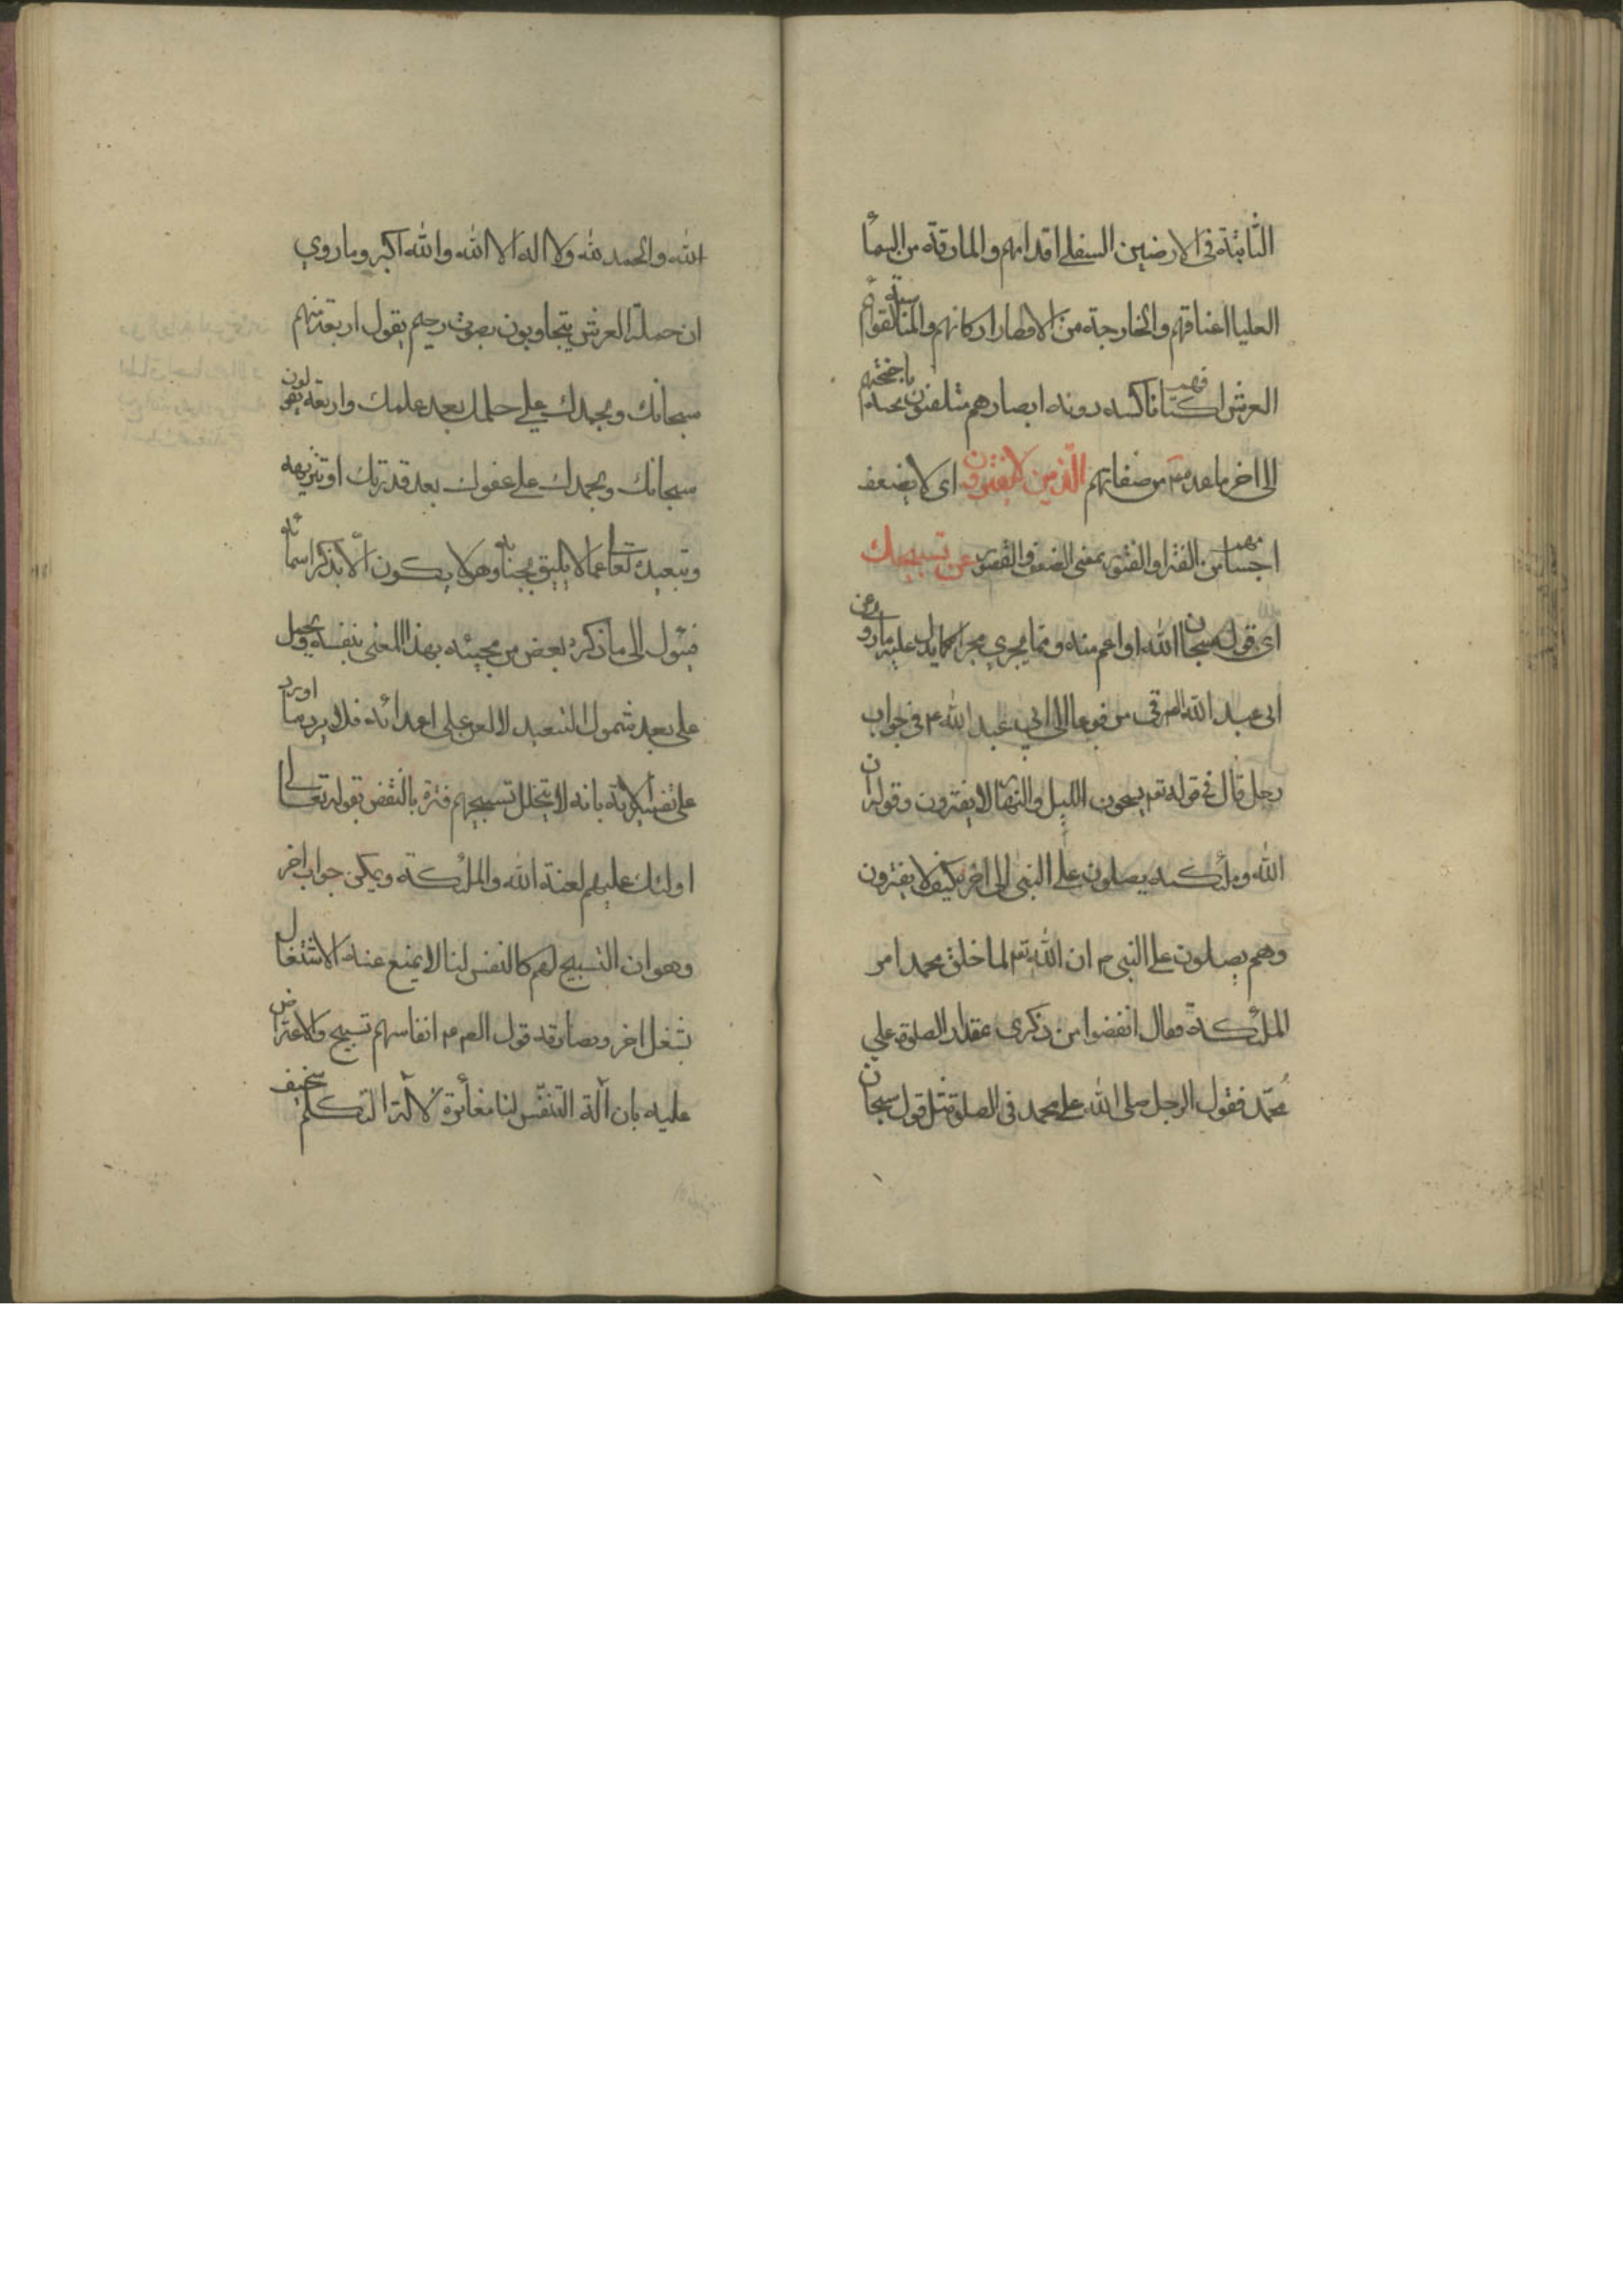 الثابتة في الارضين السفلى اقدامهم والمارقة من السمأ
العليا اعناقهم والخارجة من الاقطار اركانهم والمناسبة لقوائم
العرش اكتافهم ناكسه دونه ابصارهم متلفعون تحته باجنحتهم
الى اخر ما عد من صفاتهم الذين لا يفترون اى لا يضعف
اجسامهم من الفتر او الفتور بمعنى الضعف والقصور عن تسبيحك
اى قول سبحان الله او اعم منه ومما يجري مجراه كما يدل عليه ما روى عن
ابى عبد الله البرقى مرفوعا الى ابي عبد الله ع في جواب
رجل قال في قوله تع يسبحون الليل والنهار لا يفترون وقوله ان
الله وملئكته يصلون على النبى الى اخره كيف لا يفترون
وهم يصلون على النبى ص ان الله تع لما خلق محمد امر
الملئكة فقال انقضوا من ذكرى بمقدار الصلوة على
محمد فقول الرجل صلى الله على محمد في الصلوة مثل قول سبحان
الله والحمد لله ولا اله الا الله والله اكبر وما روي
ان حملة العرش يتجاوبون بصوت رخيم يقول اربعة منهم
سبحانك وبحمدك على حلمك بعد علمك واربعة يقولون
سبحانك وبحمدك على عفوك بعد قدرتك او تنزيهه
وتبعيده تعالى عما لا يليق بجنابه وهو لا يكون الا بذكر اسمائه
فيئول الى ما ذكره بعض من مجيئه بهذا المعنى بنفسه
على بعد شمول التبعيد لا للعن على اعدائه فلا يرد ما اورد
على تفسير الاية بانه لا يتخلل تسبيحهم فترة بالنقض بقوله تعالى
اولئك عليهم لعنة الله والملئكة ويمكن جواب اخر
وهو ان التسبيح لهم كالنفس لنا لا يمنع عنه الاشتغال
بشغل اخر ويصادقه قول انفاسهم تسبيح والاعتراض
عليه بان آلة التنفس لنا مغائرة لآلة التكلم سخيف